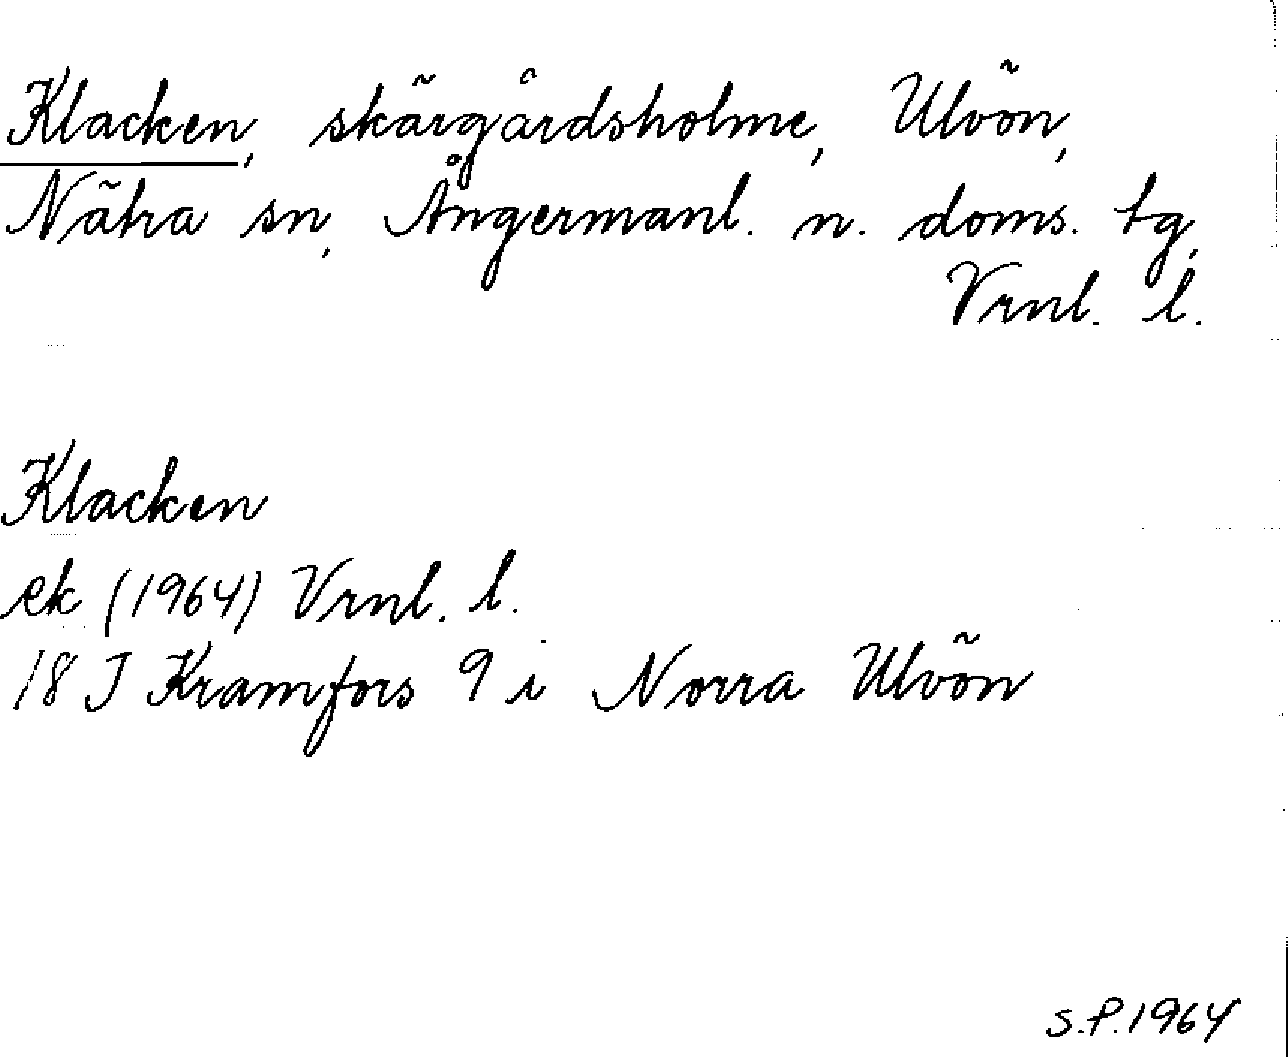 Klacken, skärgårdsholme, Ulvön,
Nätra sn, Ångermanl. n. doms. tg,
Vrnl. l.
Klacken
ek (1964) Vrnl. l.
18 J Kramfors 9 i Norra Ulvön
S.P. 1964